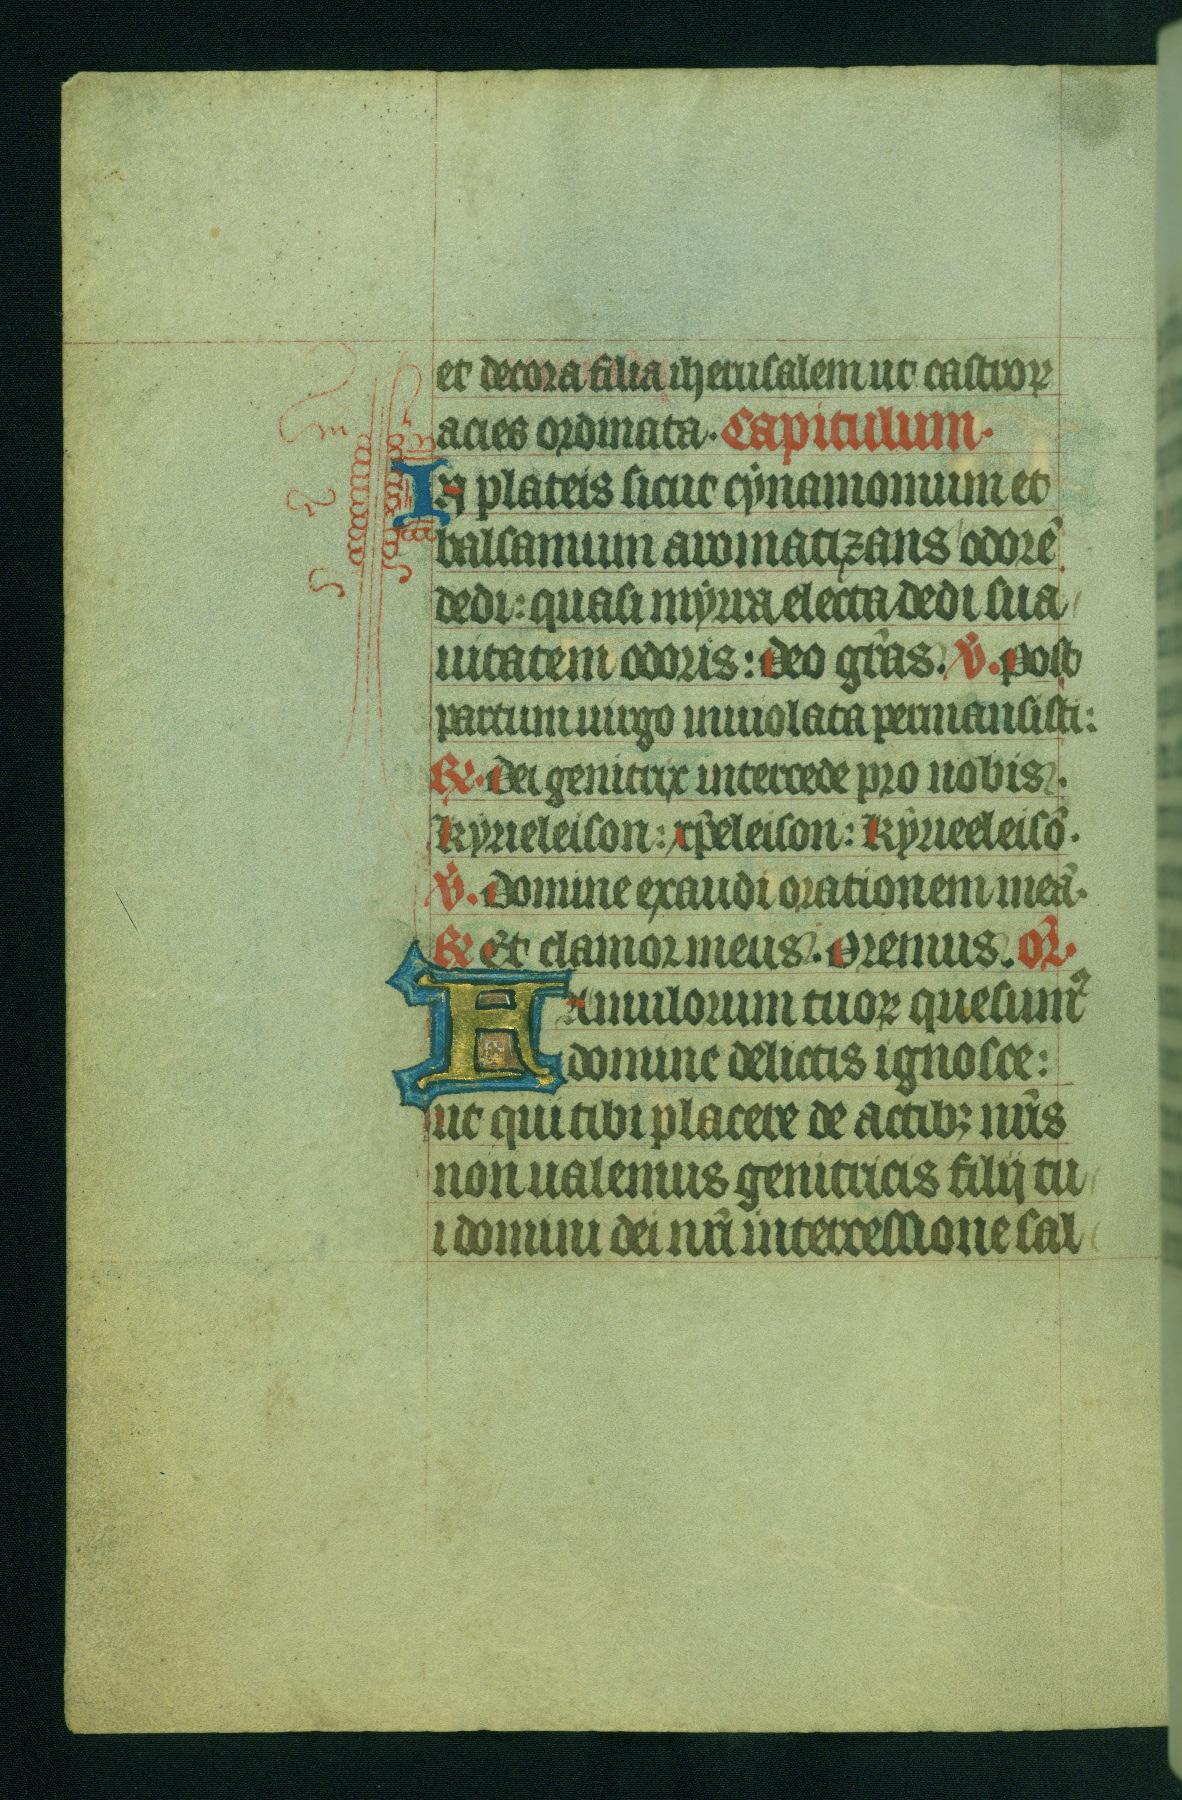 et decora filia iherusalem ut castroꝝ
acies ordinata. Capitulum.
In plateis sicut cynamomum et
balsamum aromatizans odorē
dedi: quasi myrra electa dedi sua
uitatem odoris: deo grās. V̄. post
partum uirgo inuiolata permansisti:
R̄. dei genitrix intercede pro nobis.
kyrieleison: xp̄eleison: kyrieeleisō.
V̄. domine exaudi orationem meā.
R̄ Et clamor meus. oremus. or̄.
Famulorum tuoꝝ quesumꝰ
domine delictis ignosce:
ut qui tibi placere de actibꝫ nr̄is
non ualemus genitricis filij tu
i domini dei nr̄i intercessione sal